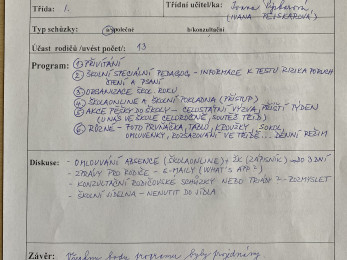 Třída: 1. Třídní učitel/ka: Ivana
(IVANA
Typ schůzky: a)společné b)konzultační
Účast rodičů /uvést počet/: 13
Program: ① PŘIVÍTÁNÍ
② ŠKOLNÍ SPECIÁLNÍ PEDAGOG - INFORMACE K TESTU RIZIKA PORUCH
ČTENÍ A PSANÍ
③ ORGANIZACE ŠKOL. ROKU
④ ŠKOLAONLINE A ŠKOLNÍ POKLADNA (PŘÍSTUP)
⑤ AKCE PĚŠKY DO ŠKOLY - CELOSTÁTNÍ VÝZVA, PŘÍŠTÍ TÝDEN
(U NÁS VE ŠKOLE CELOROČNĚ, SOUTĚŽ TŘÍD)
⑥ RŮZNÉ - FOTO PRVŇÁČKA, TABLO, KROUŽKY, SOKOL,
OMLUVENKY, ROZSAZOVÁNÍ VE TŘÍDĚ... DENNÍ REŽIM
Diskuse: - OMLOUVÁNÍ ABSENCE (ŠKOLAONLINE) + ŽK (ZÁPISNÍK) DO 3 DNÍ
- ZPRÁVY PRO RODIČE - E-MAILY (WHAT'S APP?)
- KONZULTAČNÍ RODIČOVSKÉ SCHŮZKY NEBO TRIÁDY? - ROZMYSLET
- ŠKOLNÍ JÍDELNA - NENUTIT DO JÍDLA
Závěr: Všechny body programu byly projednány